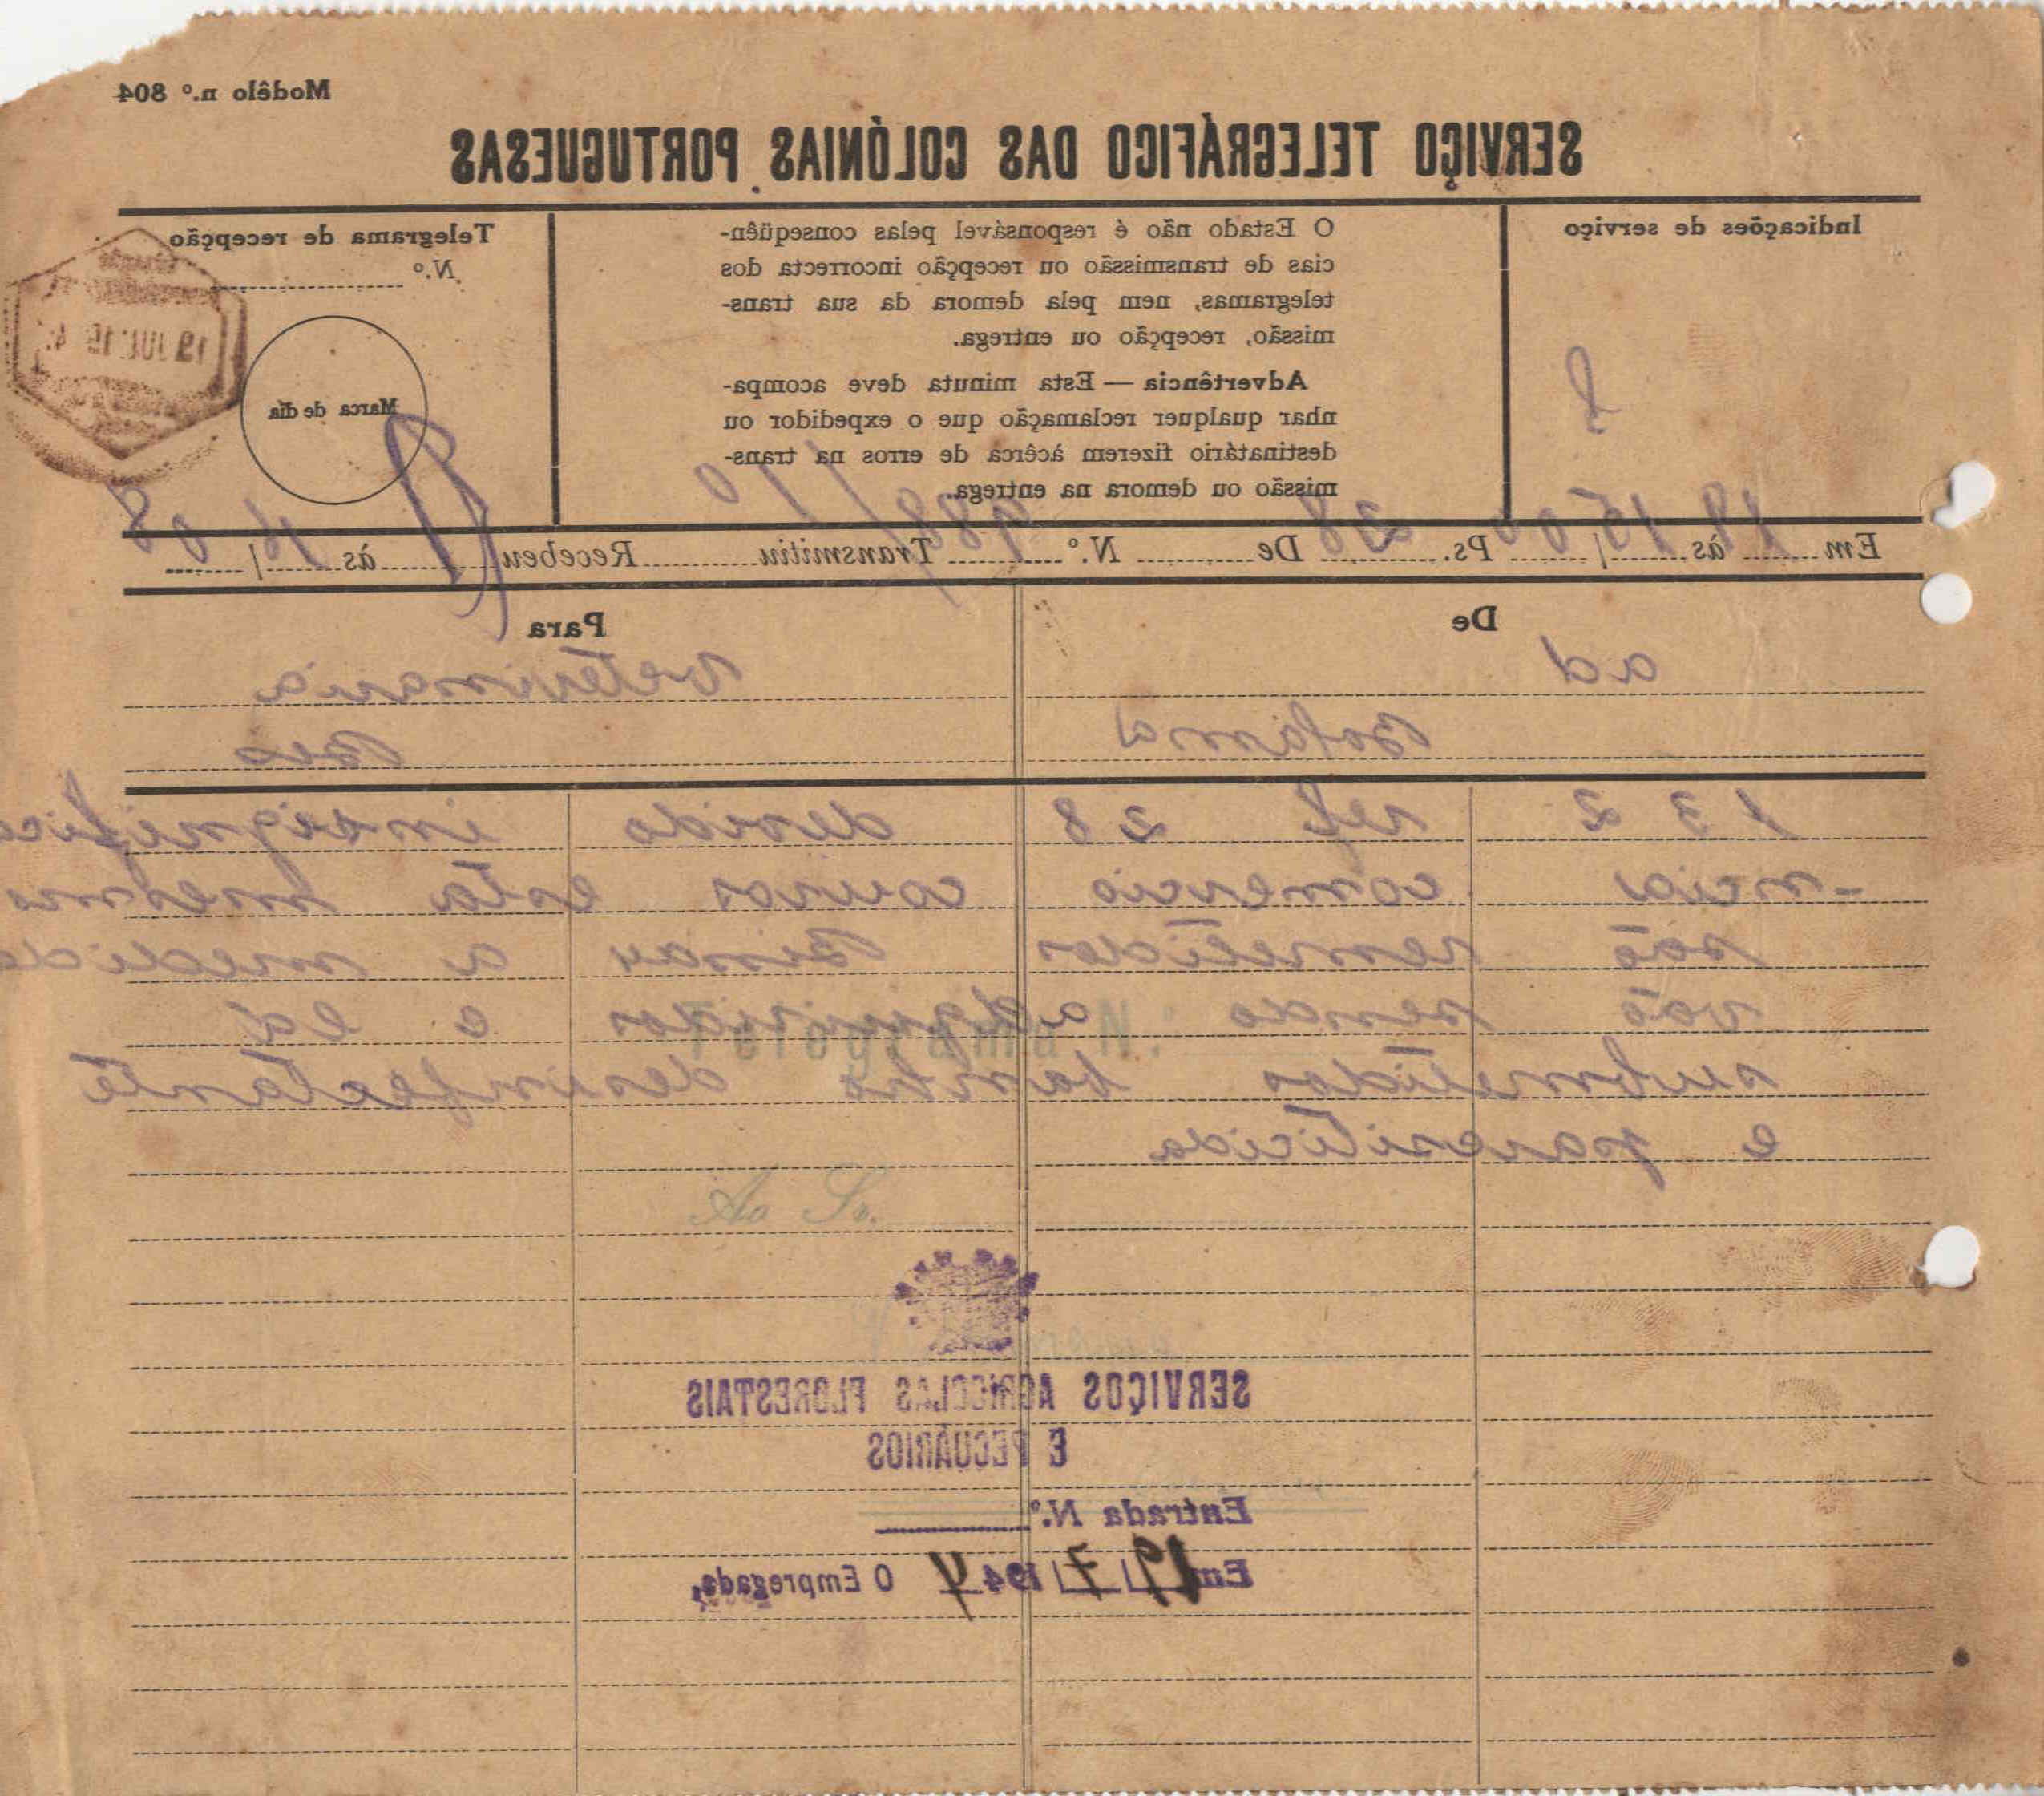 Modêlo n.º 804
SERVIÇO TELEGRÁFICO DAS COLÓNIAS PORTUGUESAS
Indicações de serviço
O Estado não é responsável pelas conseqüên-
cias de transmissão ou recepção incorrecta dos
telegramas, nem pela demora da sua trans-
missão, recepção ou entrega.
Advertência — Esta minuta deve acompa-
nhar qualquer reclamação que o expedidor ou
destinatário fizerem àcêrca de erros na trans-
missão ou demora na entrega.
Telegrama de recepção
N.º
Marca de dia
19 JUL 19
Em 19 às 15/00 Ps. 28 De N.º 988/10 Transmitiu Recebeu às /
De
Para
ad
veterinaria
Bolama
Bxo
132 ref 28 devido insignifica
-ncia comercio couros esta mesmo
são remetidos Bissau a medida
vão sendo adquiridos e
submetidos banho desinfectante
e parasiticida
Telegrama N.
Ao Sr.
SERVIÇOS AGRICOLAS FLORESTAIS
E PECUÁRIOS
Entrada N.º
Em 19/7/1944 O Empregado,